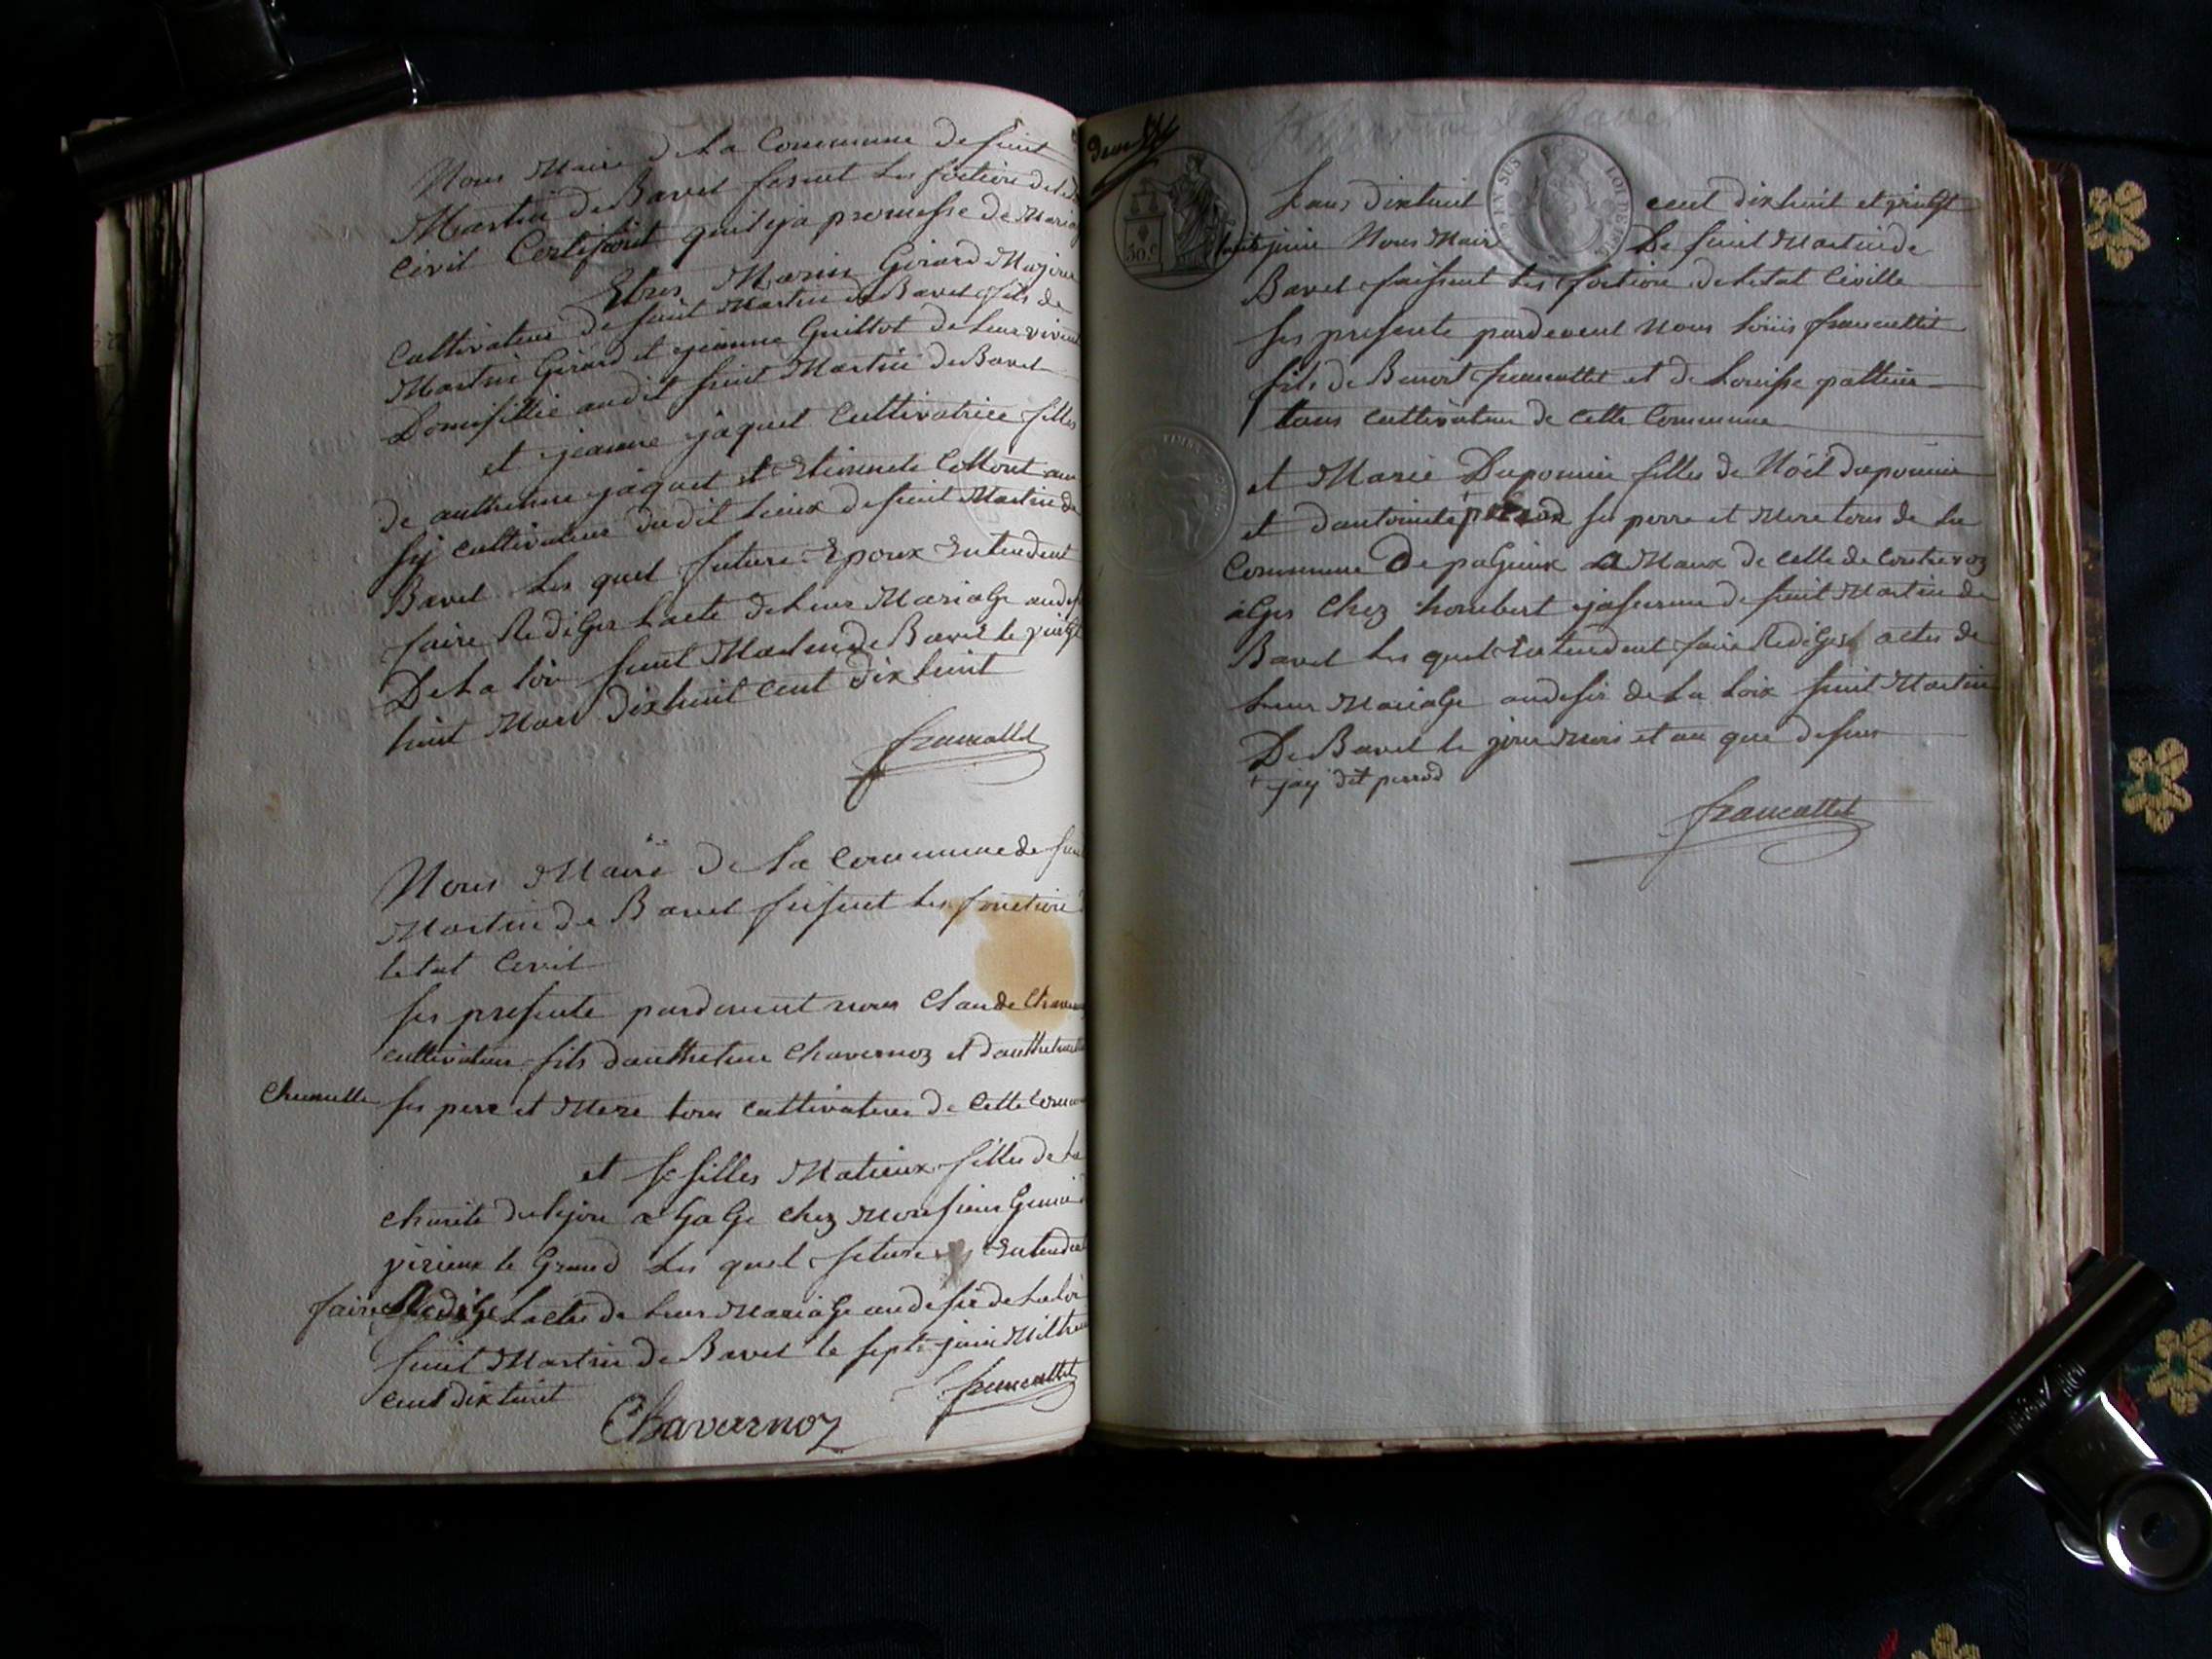 Nous Maire de La Commune de saint
Martin de Bavel fesent les foctions de letat
Civil Certifions quil yja promesse de Mariage
Etres Marin Girard Majeur
Cultivateur de saint Martin de Bavel fils de
Martin Girard et jeanne Guillot de leur vivent
Domisillie audit saint Martin de Bavel
et jeanne jaquet Cultivatrice filles
de anthelme jaquet et Etiennete Collont
sy cultivateur dudit Lieux de saint Martin de
Bavel les quel future Epoux Entendent
faire Rediger Lacte de Leur Mariage au desir
De La loi saint Martin de Bavel le vingt
huit Mars dixhuit cent dix huit
francallet
Nous Maire de La Commune de saint
Martin de Bavel faisent les fonctions
letat Civil
ses presente pardevent nous Claude
cultivateur fils danthelme Chavernoz et
Chumelle ses pere et Mere tous cultivateur de Cette
et filles Matieux filles de La
charite de lyon a Gage chez Monsieur
virieux le Grand les quel future Entendent
faire Redige Lactes de Leur Mariage au desir de La loi
saint Martin de Bavel le septe juin Mil
cent dixhuit
francallet
Chavarnoz
deux
Lans dixhuit cent dixhuit et vingt
huit juin Nous Maire De saint Martin de
Bavel faisent les foctions de letat Civille
ses presente pardevent Nous Loüis francallet
fils de Benoit francallet et de Louisse
tous cultivateur de cette Commune
et Marie Duponnie filles de Nöel duponnie
et dantoinete ses perre et Mere tous de La
Commune De pagieux de celle de Contrevoz
chez homebert de saint Martin de
Bavel les quel Entendent faire Rediges actes de
Leur Mariage au desir de La Loix saint Martin
De Bavel le jour Mois et an que dessus
+ jay dit perrod
francallet
50.c
EN SUS
LOI DE 1816
TIMBRE ROYAL